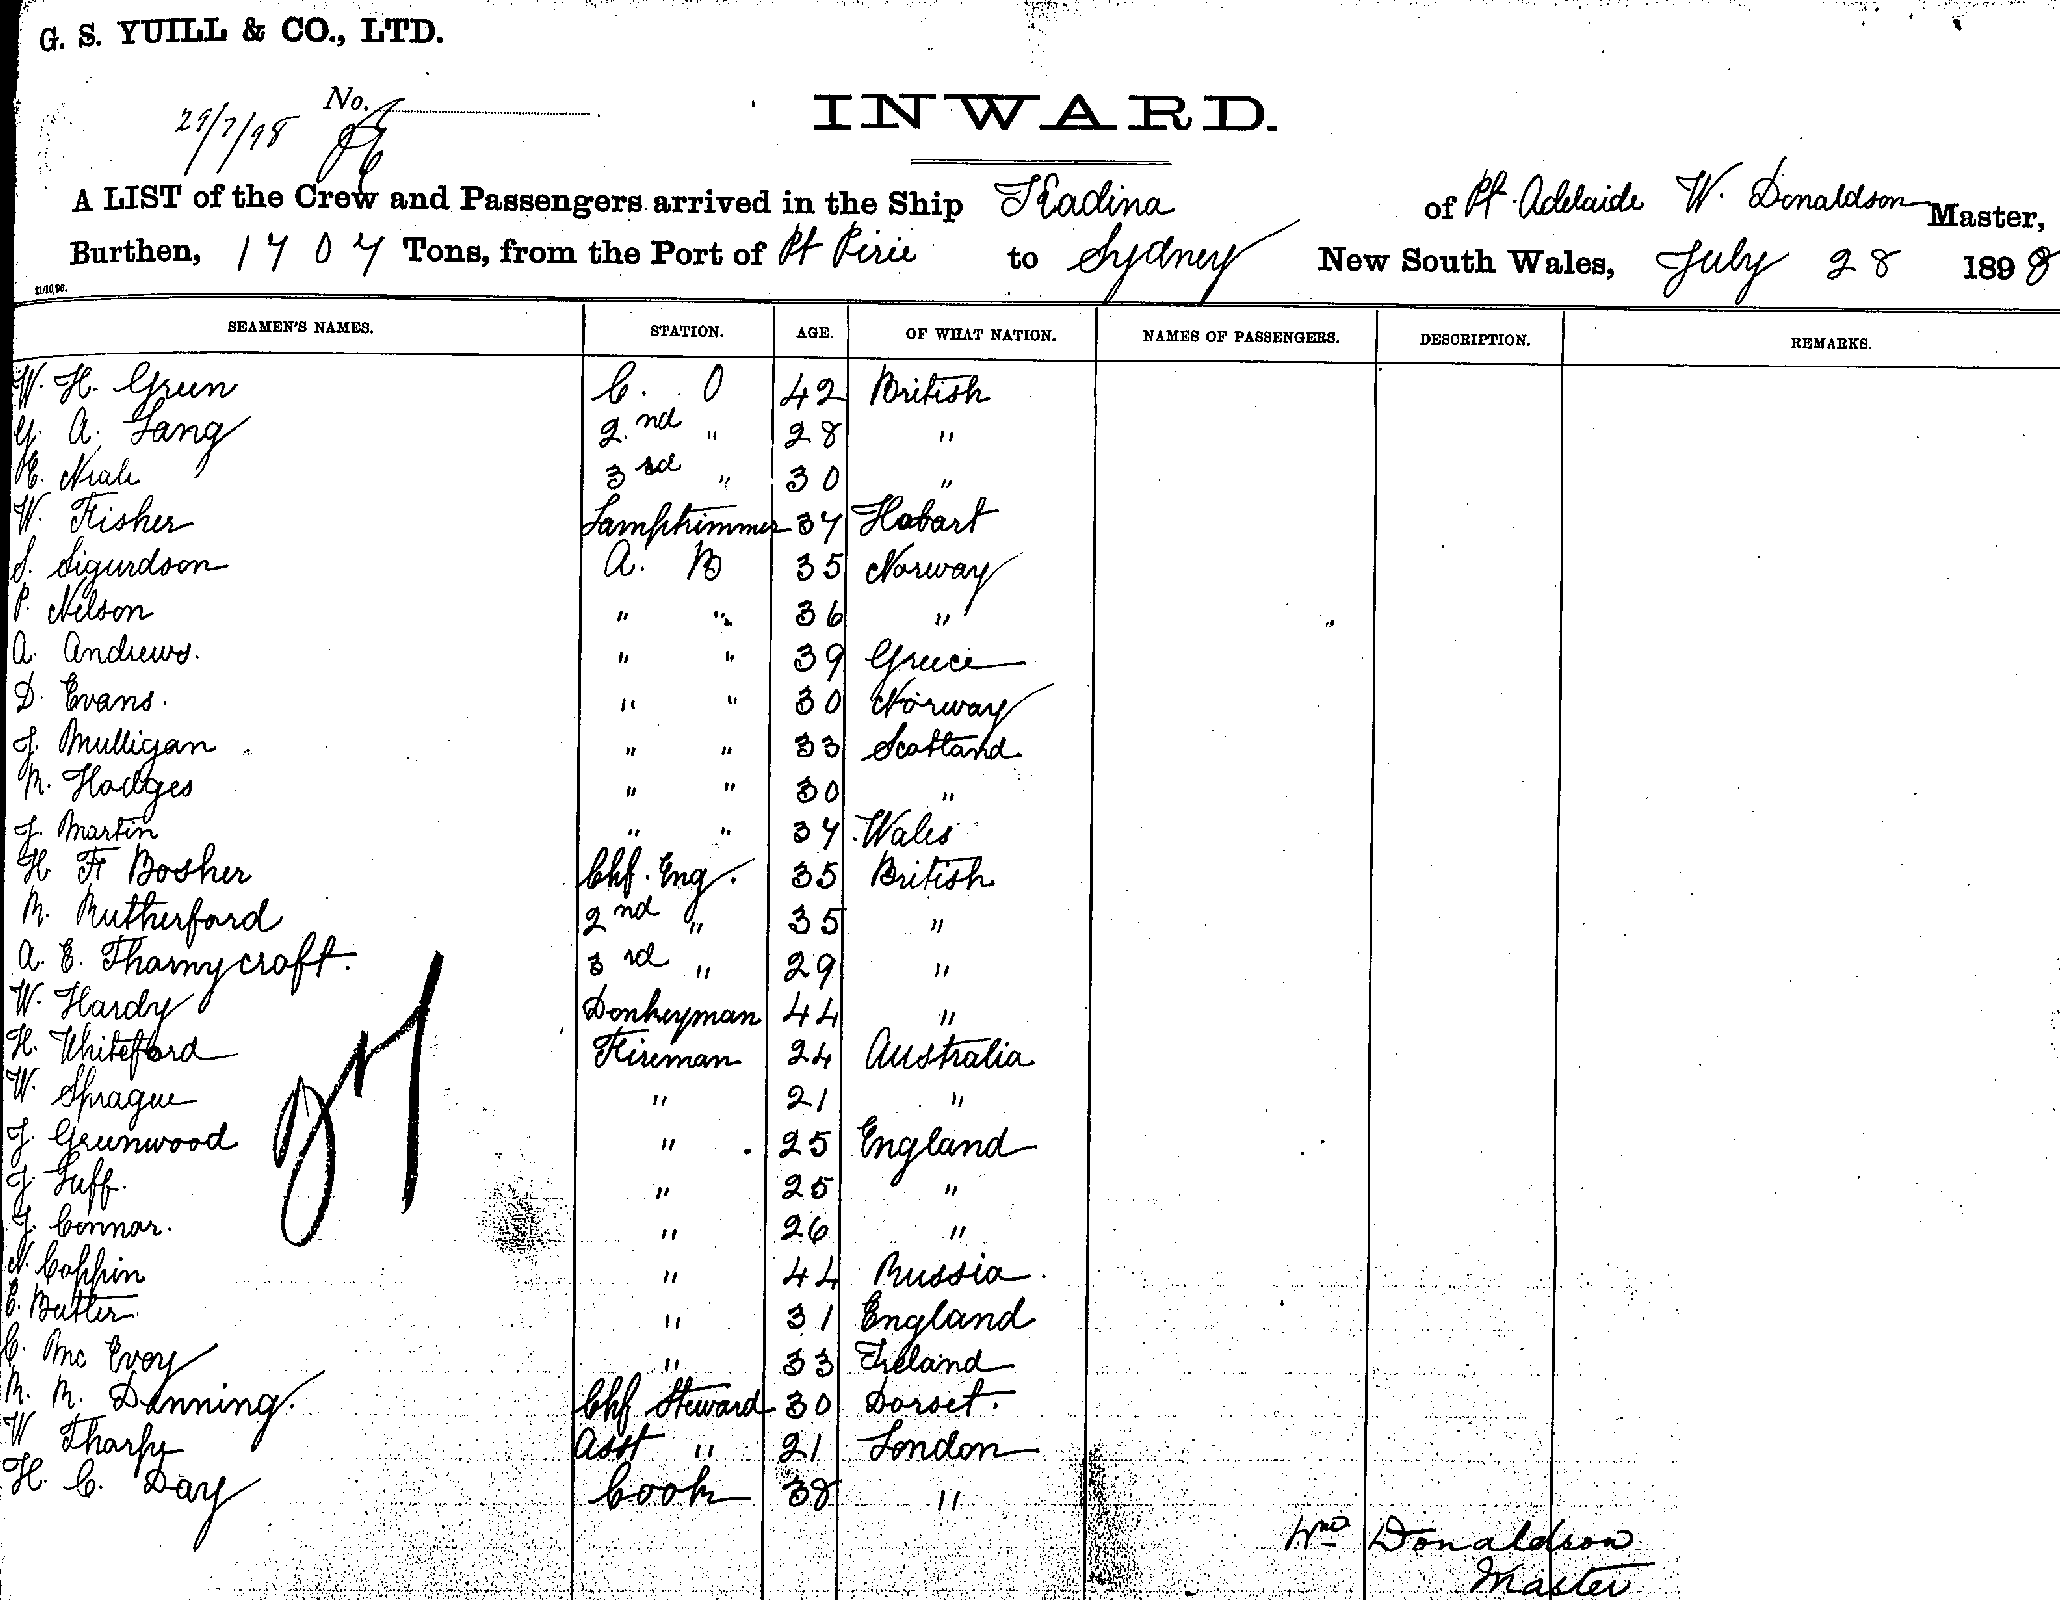 G. S. YUILL & CO., LTD.
No.
29/7/98
INWARD.
A LIST of the Crew and Passengers arrived in the Ship Kadina of Pt. Adelaide W. Donaldson Master,
Burthen, 1707 Tons, from the Port of Pt Pirie to Sydney New South Wales, July 28 1898
SEAMEN'S NAMES. STATION. AGE. OF WHAT NATION. NAMES OF PASSENGERS. DESCRIPTION. REMARKS.
W. H. Green C. O 42 British
A. Lang 2.nd " 28 "
H. Neale 3rd " 30 "
W. Fisher Lamptrimmer 37 Hobart
S. Sigurdson A. B 35 Norway
P. Nelson " " 36 "
A. Andrews. " " 39 Greece
D. Evans. " " 30 Norway
J. Mulligan " " 33 Scotland
R. Hodges " " 30 "
J. Martin " " 37 Wales
H. F Bosher Chf. Eng. 35 British
R. Rutherford 2nd " 35 "
A. E. Thornycroft. 3rd " 29 "
W. Hardy Donkeyman 44 "
H. Whiteford Fireman 24 Australia
W. Sprague " 21 "
J. Greenwood " 25 England
J. Luff. " 25 "
J. Connor. " 26 "
N. Coppin " 44 Russia.
E. Butler. " 31 England
C. Mc Evoy " 33 Ireland
R. R. Dunning. Chf Steward 30 Dorset.
W Tharpy Asst " 21 London
H. C. Day Cook 38 "
27
Wm Donaldson
Master